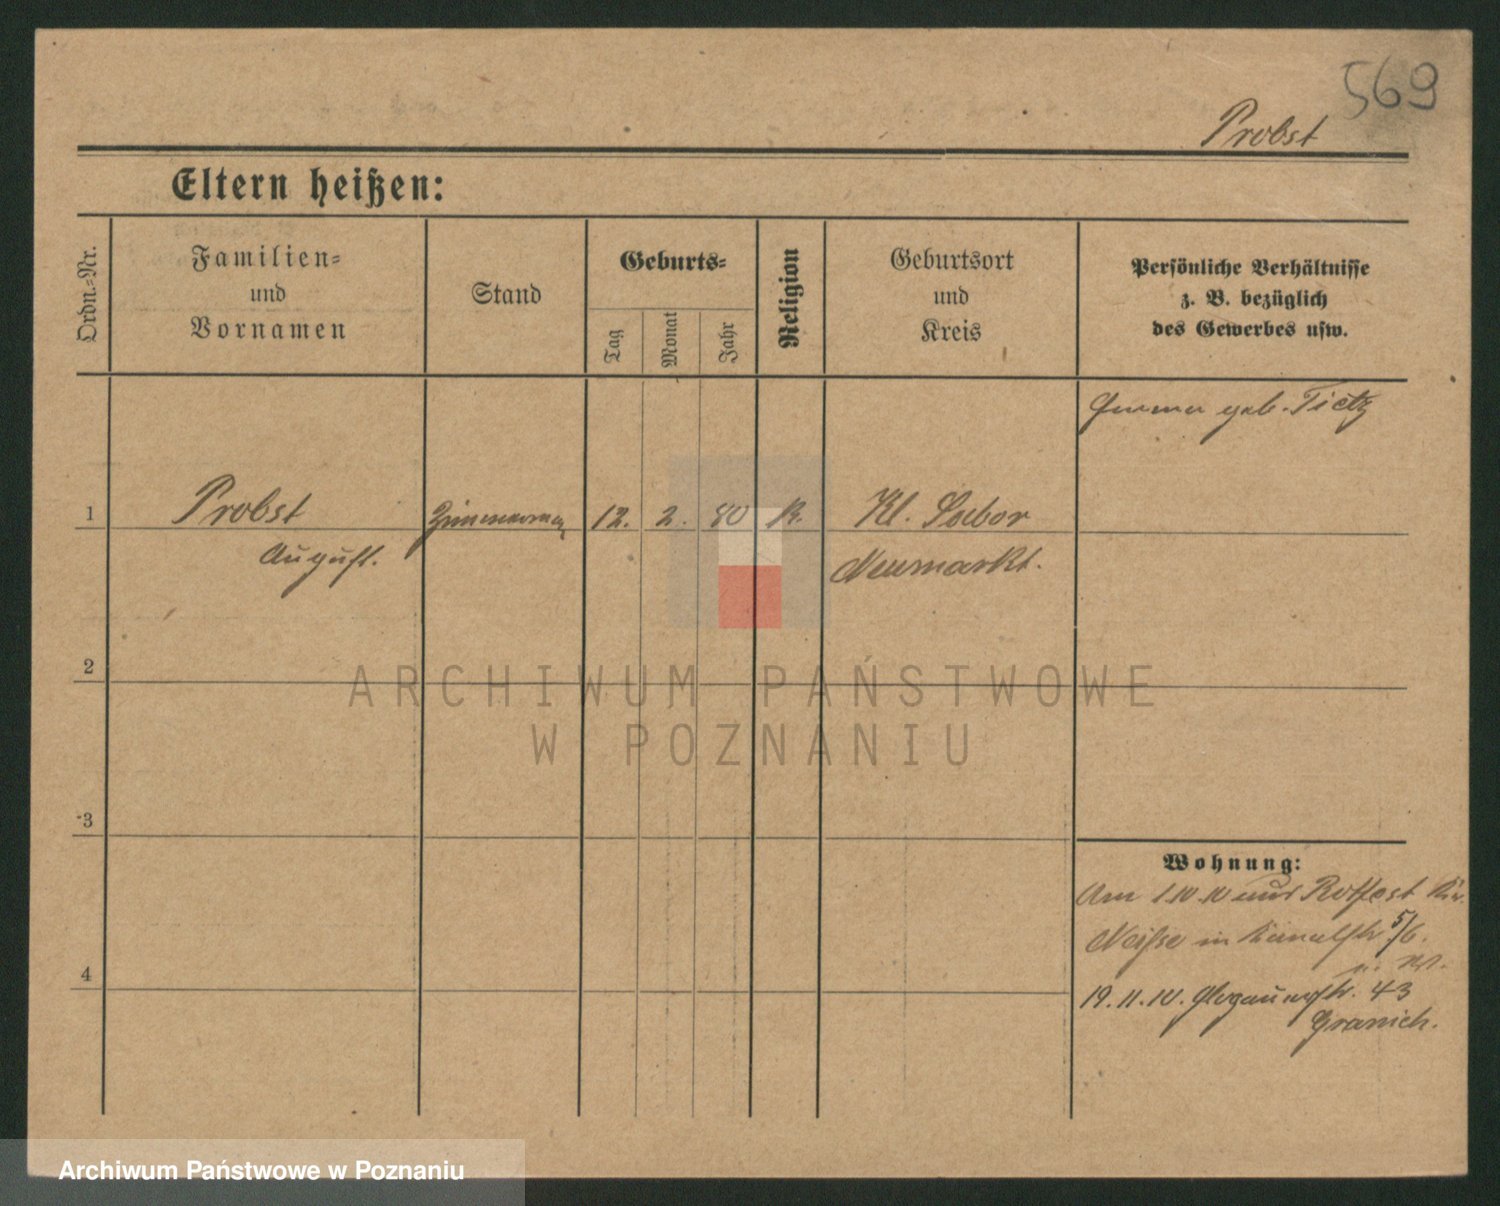 569
Probst
Eltern heißen:
Ordn.-Nr.
Familien-
und
Vornamen
Stand
Geburts-
Tag
Monat
Jahr
Religion
Geburtsort
und
Kreis
Persönliche Verhältnisse
z. B. bezüglich
des Gewerbes usw.
geb. Tietz
1
Probst
August.
12. 2. 80 K.
Kl. Sabor
Neumarkt.
2
3
4
Wohnung:
Am 1.10.10 aus
Neisse in 5/6.
19.11.10. Glogauerstr. 43
ARCHIWUM PAŃSTWOWE
W POZNANIU
Archiwum Państwowe w Poznaniu